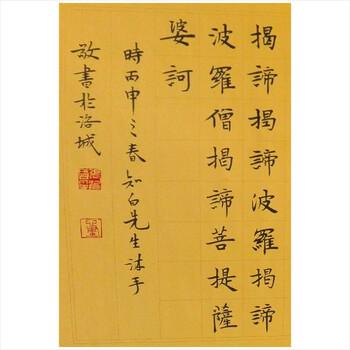 揭諦揭諦波羅揭諦
波羅僧揭諦菩提薩
婆訶
時丙申之春知白先生沐手
敬書於洛城